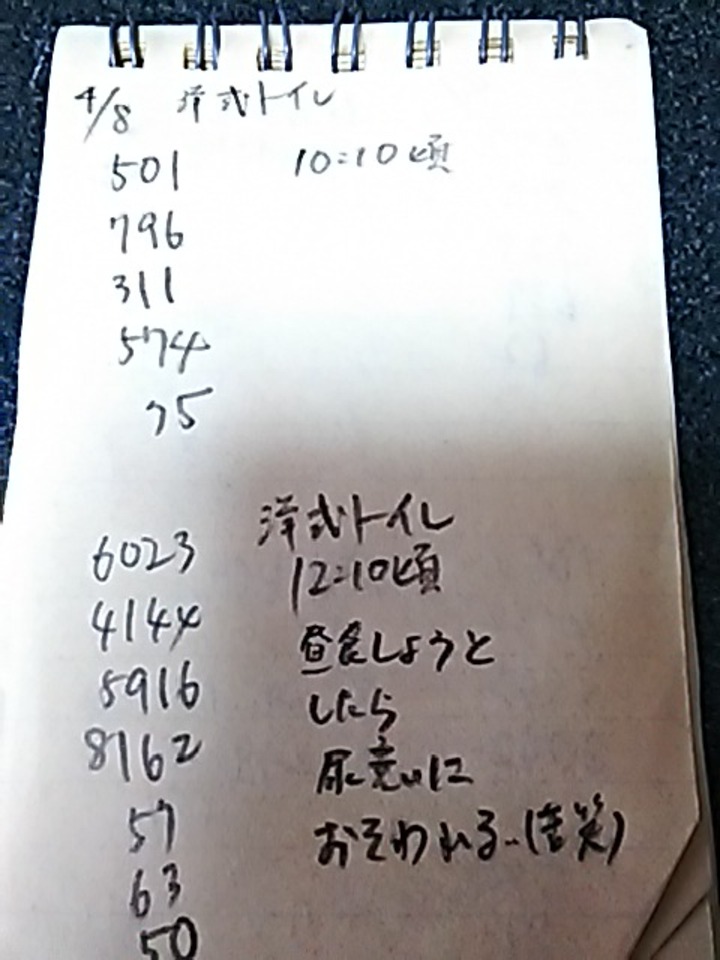 4/8 洋式トイレ
501 10:10頃
796
311
574
75
洋式トイレ
6023
12:10頃
4144
昼食しようと
5916
したら
8162
尿意に
57
おそわれる..(苦笑)
63
50